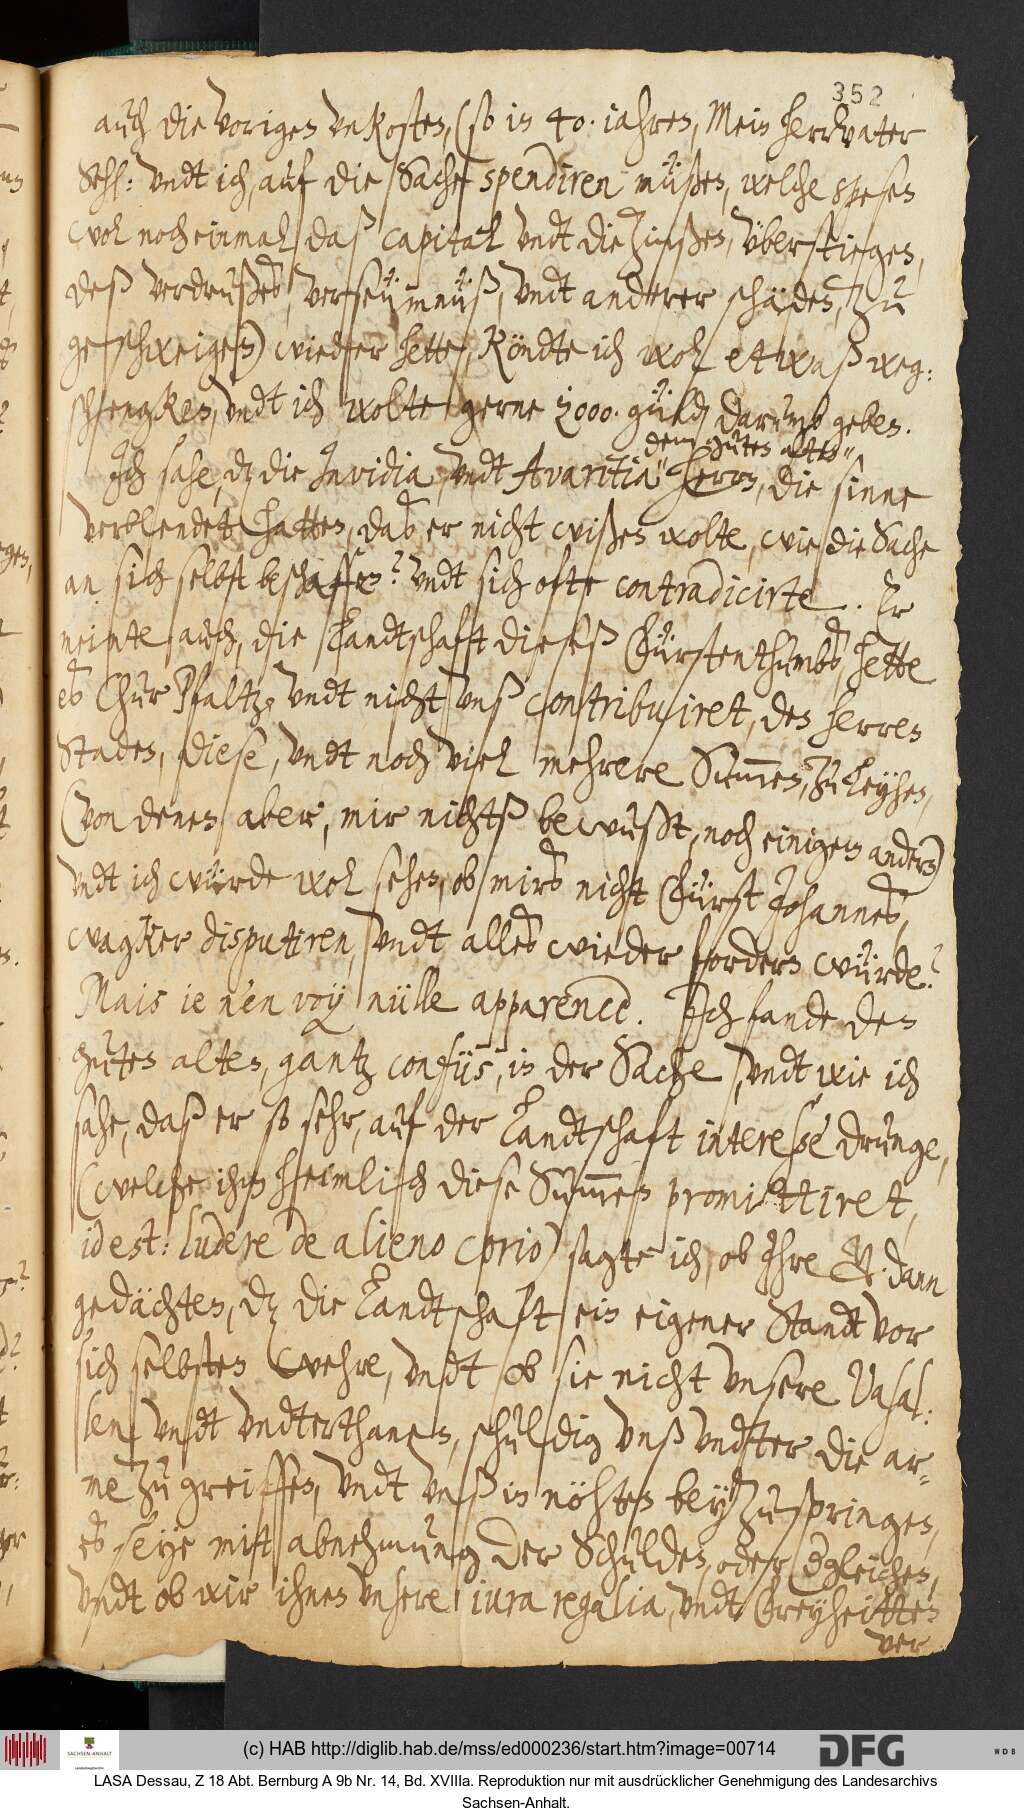 352
auch die vorigen vnkosten, (so in 40. iahren, Mein herrvater
Sehl: vndt ich, auf die Sache spendiren müßen, welche spesen
wol noch einmal daß capital vndt die Zinßen, vberstiegen,
deß verdrußes, verseümnüß, vndt anderer schäden, zu
geschweigen) wieder hette, Köndte ich wol etwaß weg:
schencken, vndt ich wolte gerne 2000. güld. darumb geben.
dem guten alten"
Ich sahe, dz die Invidia, vndt Avaritia" herrn, die sinne
verblendet hatten, daß er nicht wißen wolte, wie die Sache
an sich selbst beschaffen? vndt sich ofte contradicirte. Er
meinte auch, die Landtschaft dieses Fürstenthumbs, hette
es Chur Pfaltz, vndt nicht vnß contribuiret, den herren
Staden, diese, vndt noch viel mehrere Summen, zu leyhen,
(von denen aber, mir nichts bewußt, noch einigen andern)
vndt ich würde wol sehen, ob mirs nicht Fürst Johannes,
wagker disputiren, vndt alles wieder fordern würde?
Mais ie n'en voy nülle apparence. Ich fande den
guten alten, gantz confüs, in der Sache, vndt wie ich
sahe, daß er so sehr, auf der Landtschaft interesse drunge,
(welche ihm heimlich diese Summen promittiret,
id est: ludere de alieno corio) sagte ich, ob Ihre G. dann
gedächten, dz die Landtschaft ein eigener Standt vor
sich selbsten wehre, vndt ob sie nicht vnsere Vasal:
len vndt vndterthanen, schuldig vnß vndter die ar-
me zu greiffen, vndt vnß in nöhten beyzuspringen,
es seye mit abnehmung der Schulden, oder dergleichen,
vndt ob wir ihnen vnsere iura regalia, vndt Freyheitten
ver
(c) HAB http://diglib.hab.de/mss/ed000236/start.htm?image=00714
SACHSEN-ANHALT
DFG
WDB
LASA Dessau, Z 18 Abt. Bernburg A 9b Nr. 14, Bd. XVIIIa. Reproduktion nur mit ausdrücklicher Genehmigung des Landesarchivs
Sachsen-Anhalt.